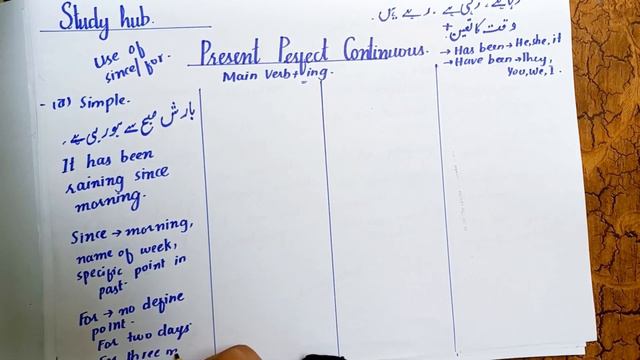 Study hub.
رہا ہے، رہی ہے، رہے ہیں.
وقت کا تعین +
Use of
since/for.
Present Perfect Continuous.
→ Has been → He, she, it
→ Have been → They,
You, we, I.
Main Verb + ing.
Simple.
بارش صبح سے ہو رہی ہے.
It has been
raining since
morning.
Since → morning,
name of week,
specific point in
past.
For → no define
point.
For two days
For three